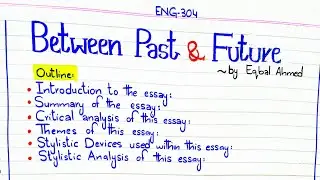 ENG-304
Between Past & Future
~by Eqbal Ahmed
Outline:
• Introduction to the essay:
• Summary of the essay:
• Critical analysis of this essay:
• Themes of this essay:
• Stylistic Devices used within this essay:
• Stylistic Analysis of this essay: